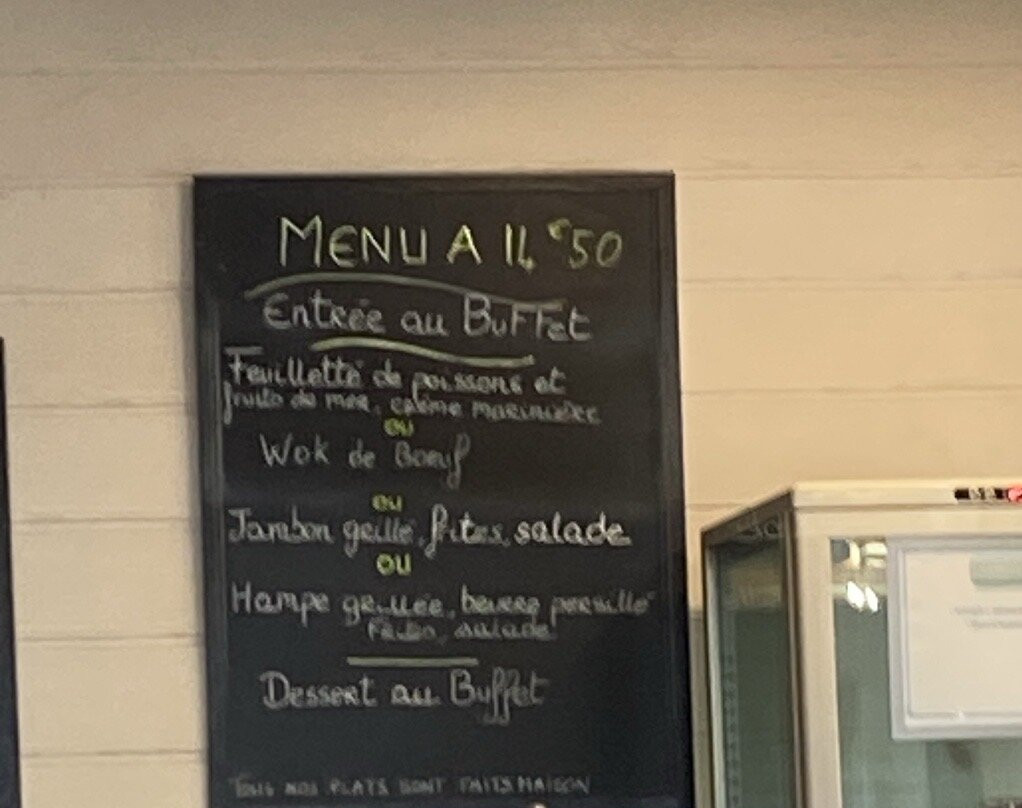 MENU A 14 €50
Entrée au BuFFet
Feuilletté de poissons et
fruits de mer, crème marinière
ou
Wok de Boeuf
ou
Jambon grillé, frites, salade
ou
Hampe grillée, beurre persillé
frites, salade
Dessert au Buffet
TOUS NOS PLATS SONT FAITS MAISON